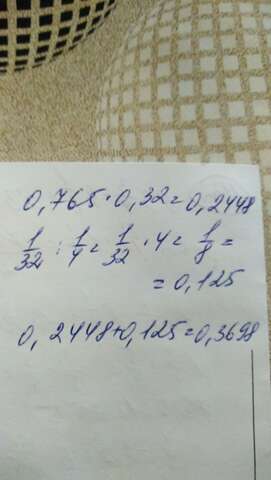 0,765·0,32=0,2448
1/32 : 1/4 = 1/32 · 4 = 1/8 =
= 0,125
0,2448+0,125=0,3698